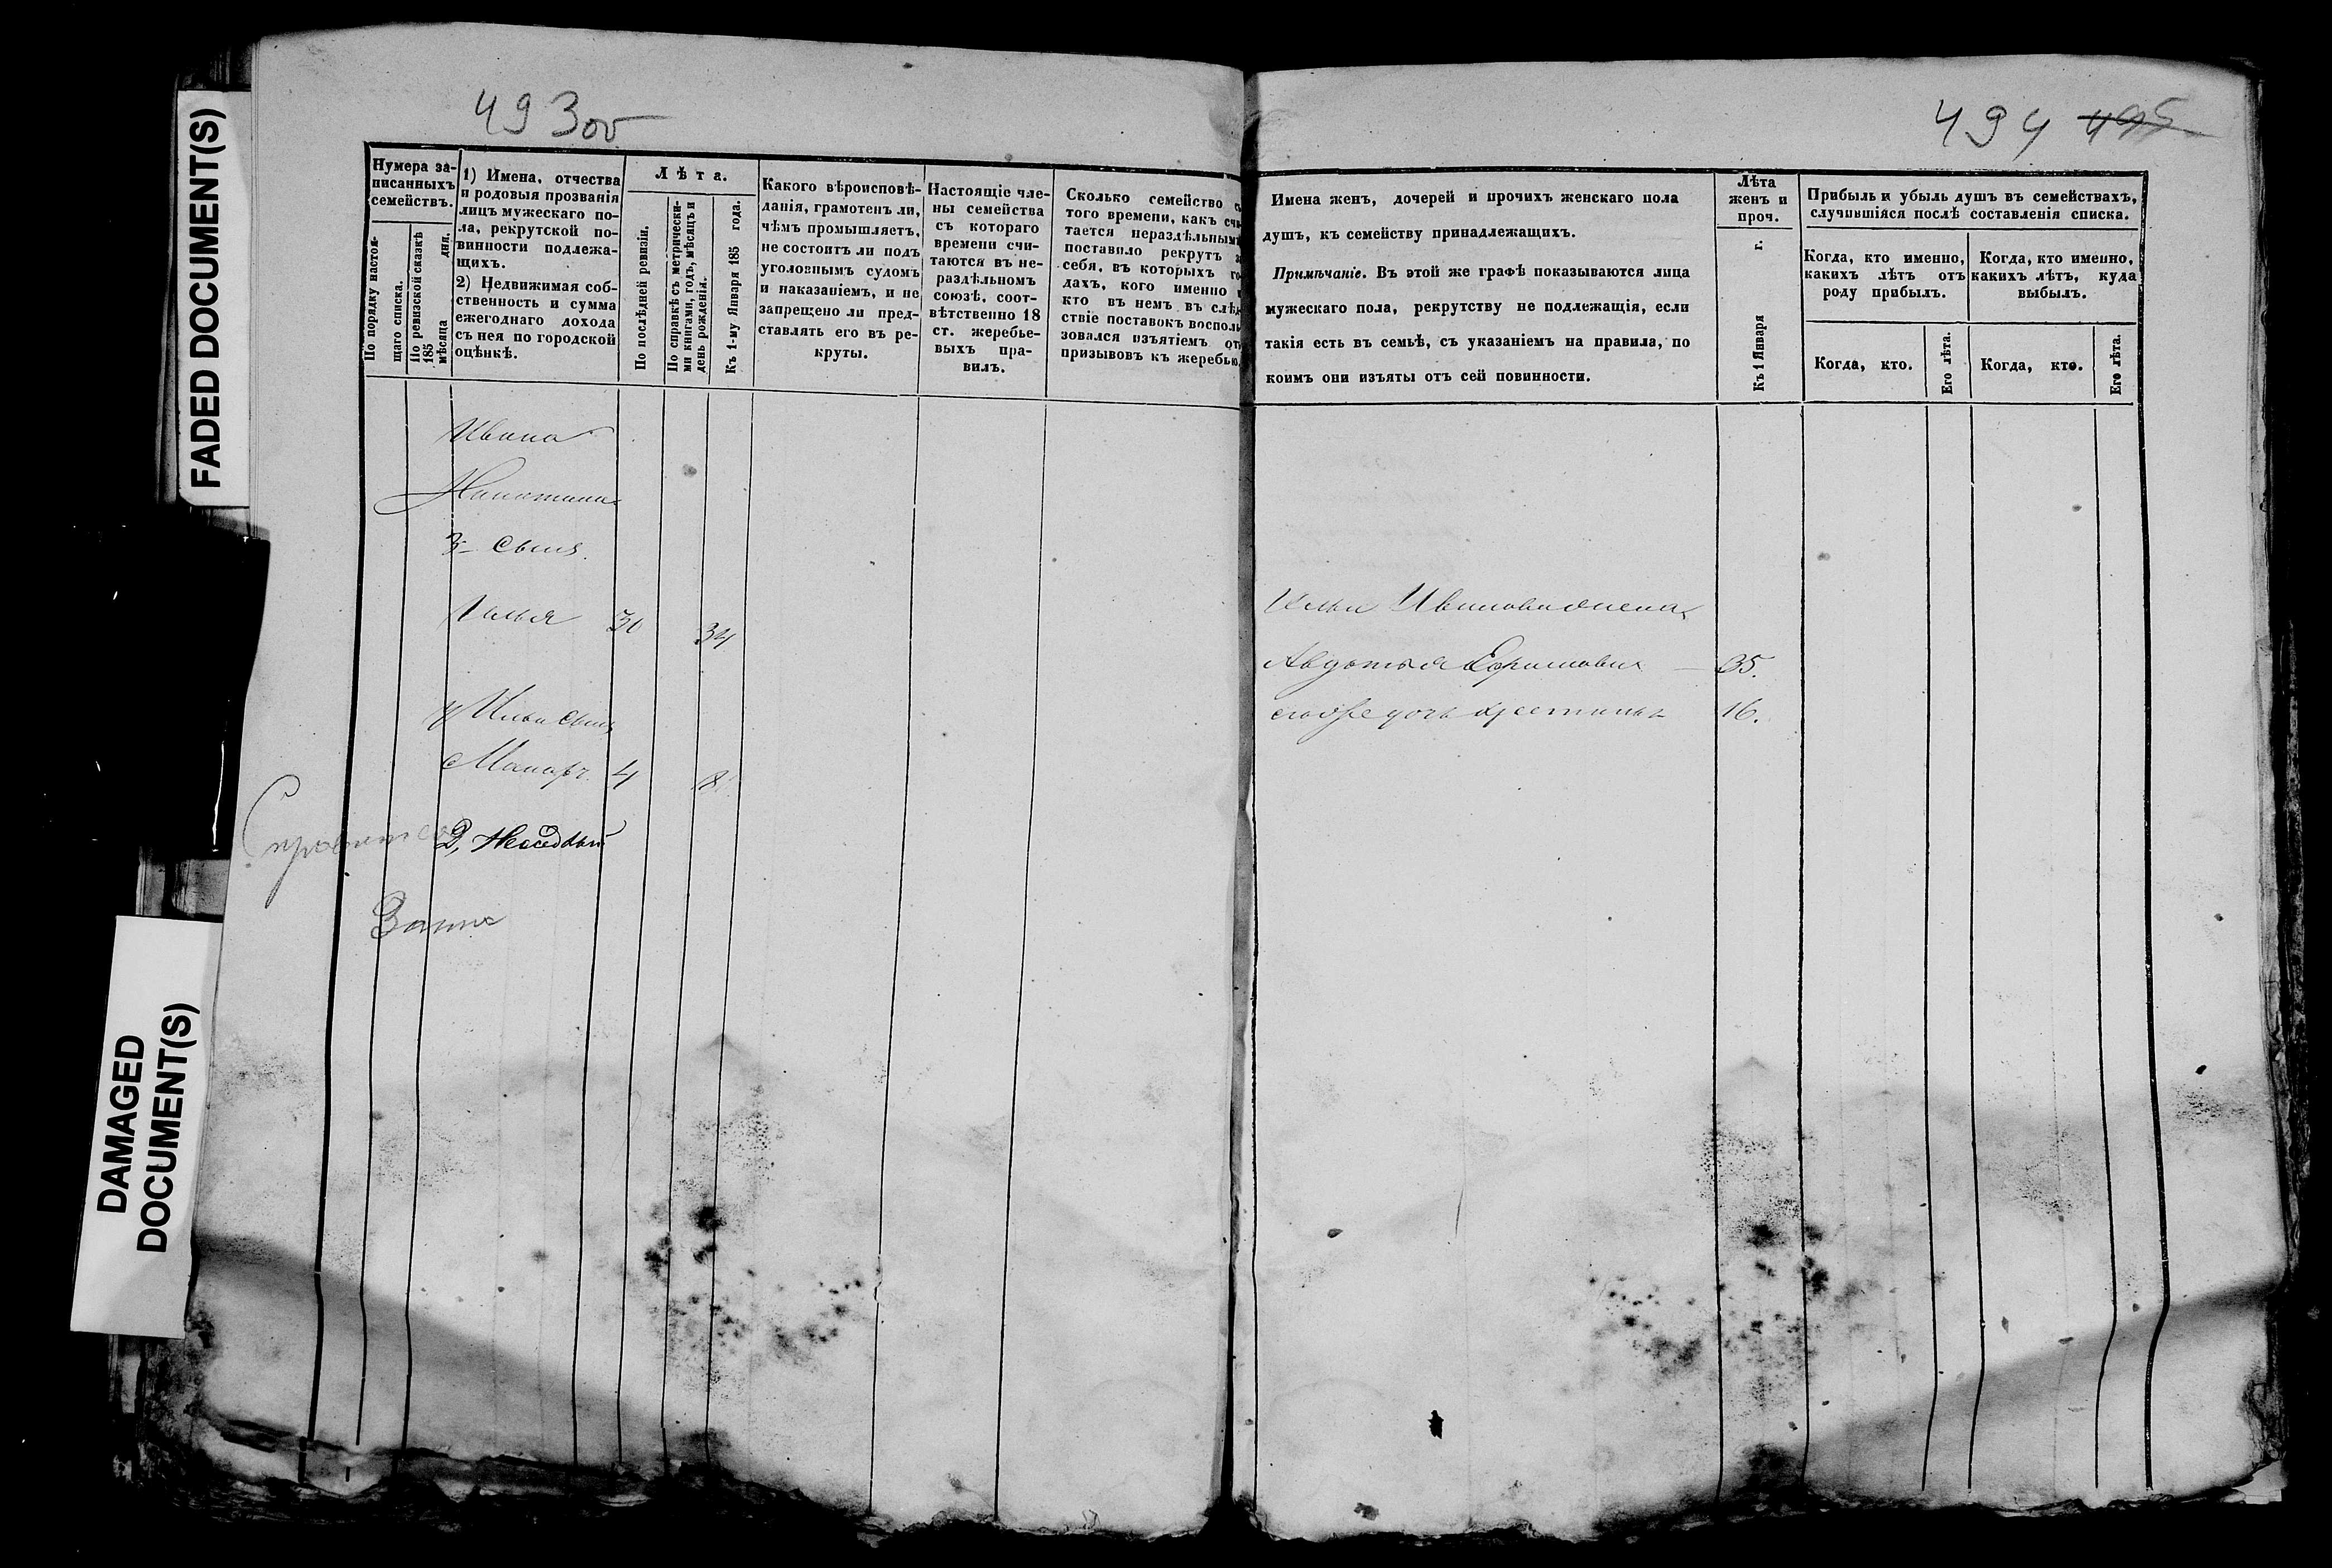 FADED DOCUMENT(S)
DAMAGED
DOCUMENT(S)
493 об
Нумера за-
писанныхъ
семействъ.
По порядку настоя-
щаго списка.
По ревизской сказкѣ
185
мѣсяца дня.
1) Имена, отчества
и родовыя прозванія
лицъ мужескаго по-
ла, рекрутской по-
винности подлежа-
щихъ.
2) Недвижимая соб-
ственность и сумма
ежегоднаго дохода
съ нея по городской
оцѣнкѣ.
Лѣта.
По послѣдней ревизіи.
По справкѣ съ метрически-
ми книгами, годъ, мѣсяцъ и
день рожденія.
Къ 1-му Января 185 года.
Какого вѣроисповѣ-
данія, грамотенъ ли,
чѣмъ промышляетъ,
не состоитъ ли подъ
уголовнымъ судомъ
и наказаніемъ, и не
запрещено ли пред-
ставлять его въ ре-
круты.
Настоящіе чле-
ны семейства
съ котораго
времени счи-
таются въ не-
раздѣльномъ
союзѣ, соот-
вѣтственно 18
ст. жеребье-
выхъ пра-
вилъ.
Сколько семейство с
того времени, какъ счи
тается нераздѣльнымъ
поставило рекрутъ з
себя, въ которыхъ го
дахъ, кого именно и
кто въ немъ въ слѣд
ствіе поставокъ восполь
зовался изъятіемъ отъ
призывовъ къ жеребью.
Ивана
3- сынъ
Илья 30 34
Ильи сынъ
Макаръ 4 8
494 495
Имена женъ, дочерей и прочихъ женскаго пола
душъ, къ семейству принадлежащихъ.
Примѣчаніе. Въ этой же графѣ показываются лица
мужескаго пола, рекрутству не подлежащія, если
такія есть въ семьѣ, съ указаніемъ на правила, по
коимъ они изъяты отъ сей повинности.
Лѣта
женъ и
проч.
Къ 1 Января г.
Прибыль и убыль душъ въ семействахъ,
случившіяся послѣ составленія списка.
Когда, кто именно,
какихъ лѣтъ отъ
роду прибылъ.
Когда, кто именно,
какихъ лѣтъ, куда
выбылъ.
Когда, кто.
Его лѣта.
Когда, кто.
Его лѣта.
Ильи Иванова жена
Авдотья Ефимовна — 35.
дочь 16.